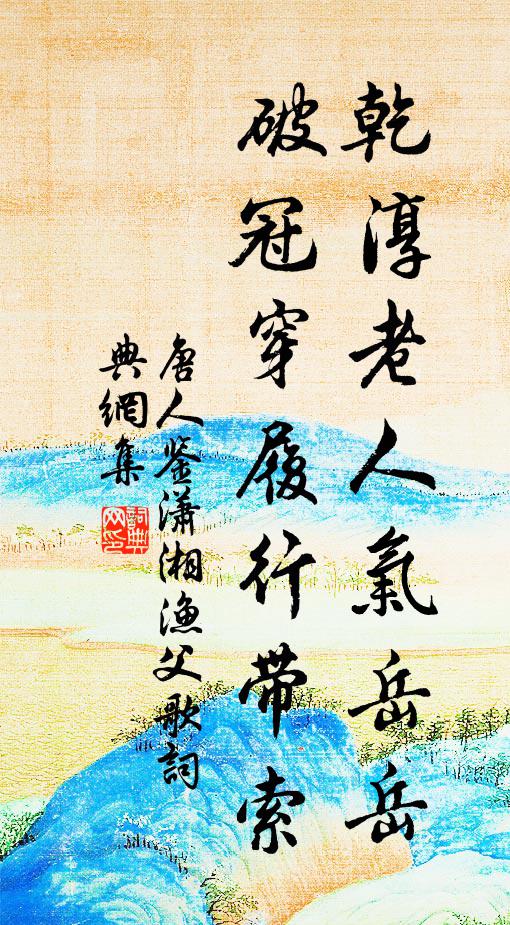 乾淳老人氣岳岳
破冠穿履行帶索
唐人鉴瀟湘漁父歌詞
典網集
詞典
网印